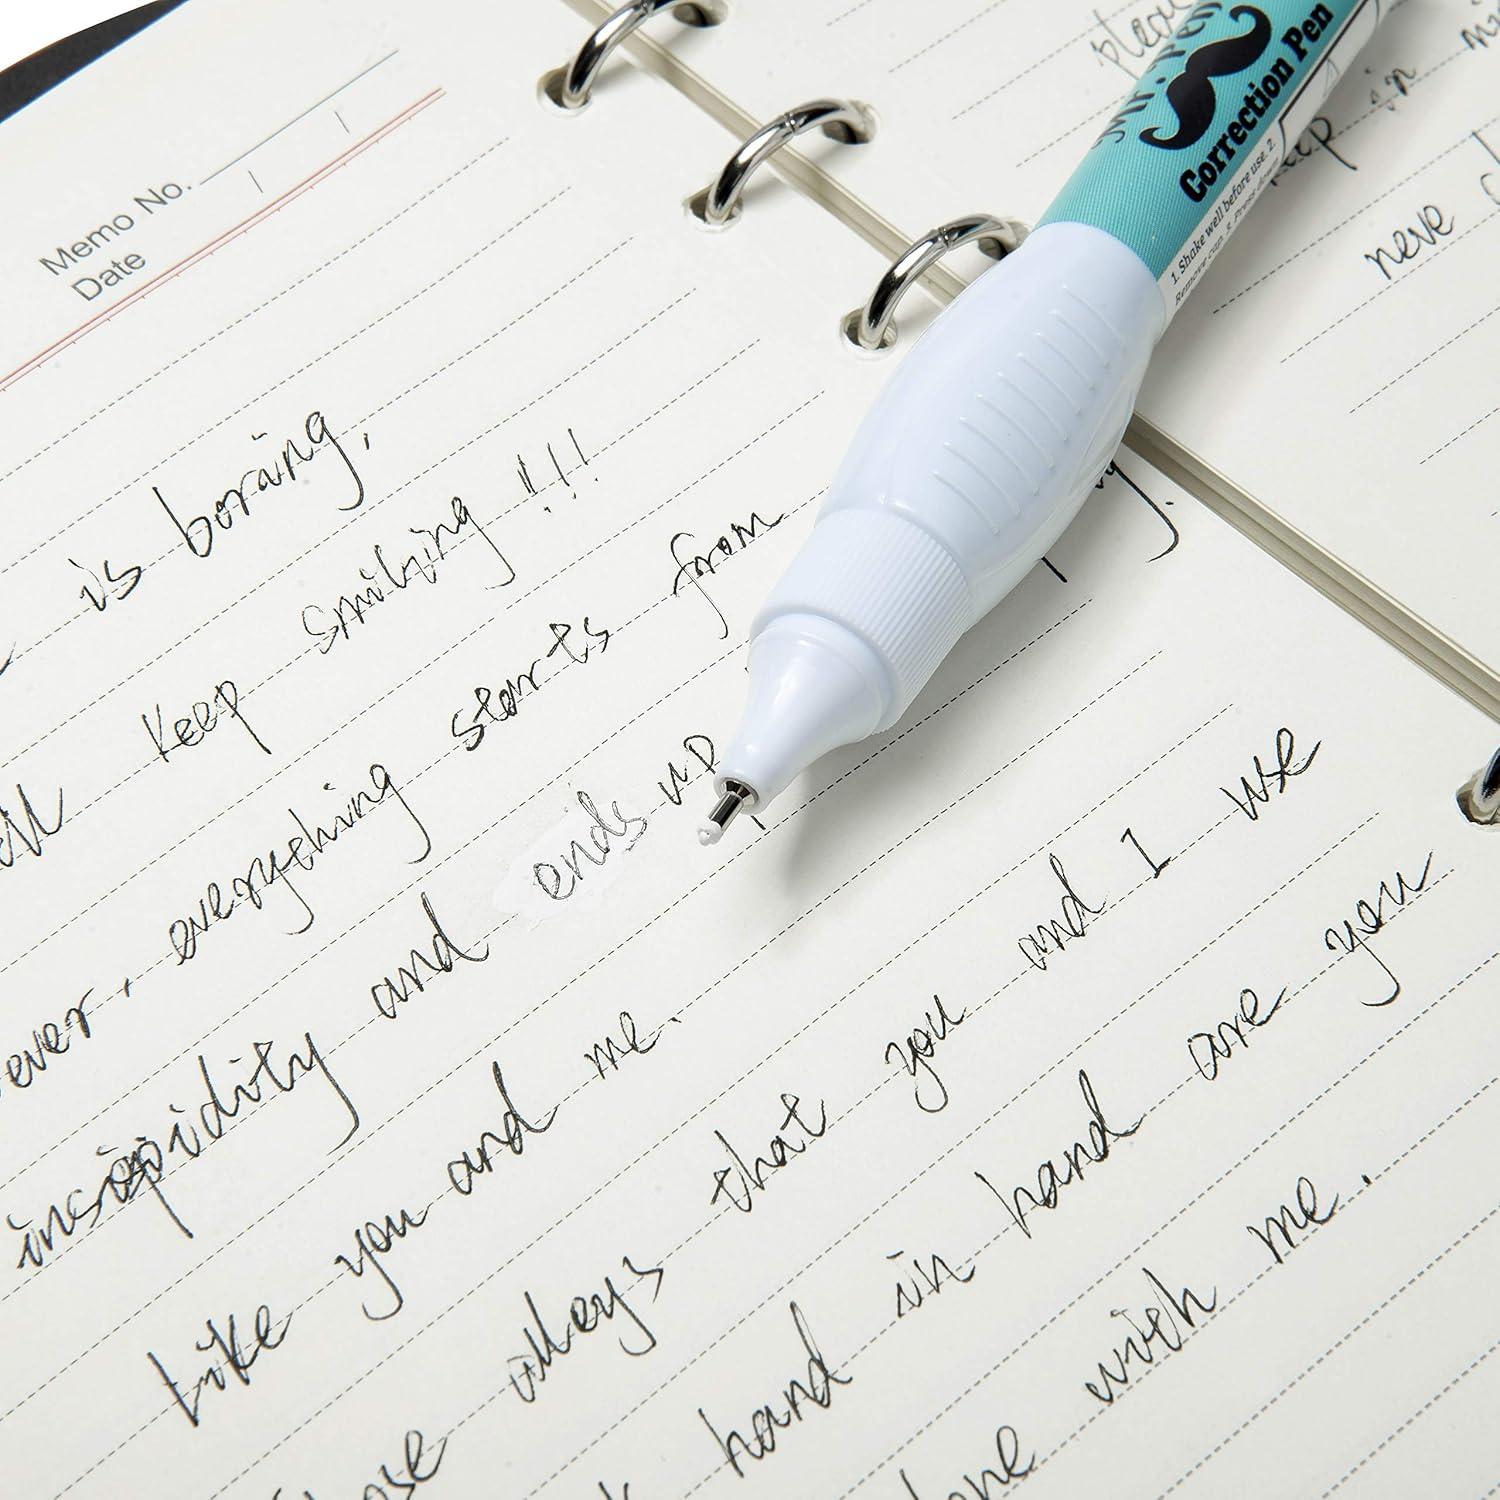 Memo No.
Date
is boring,
keep smiling !!!!
ever, everything starts from
insipidity and ends up
Like you and me.
alleys that you and I use
hand in hand are you
with me.
Mr. Pen
Correction Pen
1. Shake well before use. 2.
Remove cap. 3. Press down
in